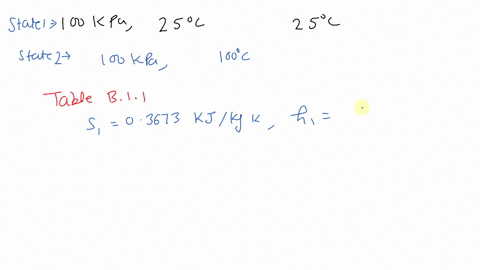 State 1→ 100 KPa, 25°C 25°C
State 2→ 100 KPa, 100°C
Table B.1.1
S₁ = 0.3673 KJ/Kg K, h₁ =